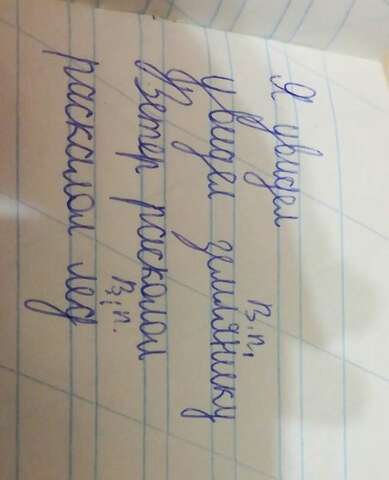 Я увидел
В.п.
увидел землянику
Ветер расколол
В.п.
раскалол лед